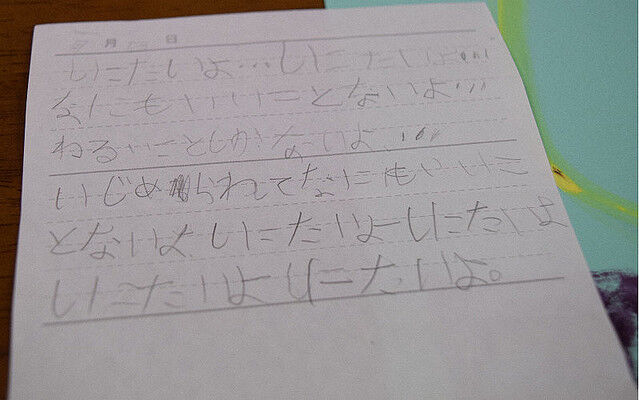 月 日
しにたいよ…しにたいよ…
なにもいいことないよ…
わるいことしかないよ…
いじめられてなにもいいこ
とないよ しにたいよーしにたいよ
しにたいよ しにたいよ。